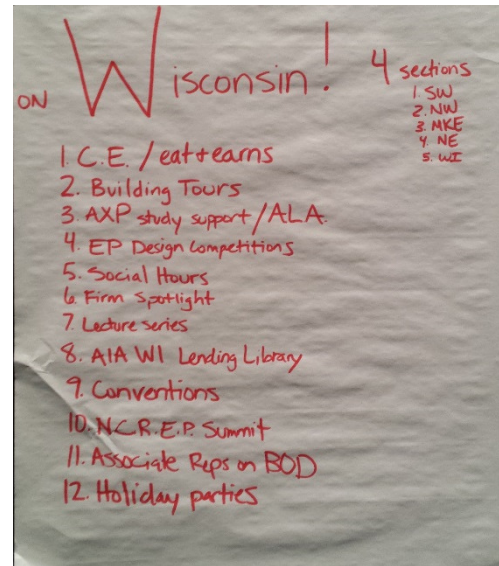 ON Wisconsin!
4 sections
1. SW
2. NW
3. MKE
4. NE
5. WI
1. C.E. / eat+earns
2. Building Tours
3. AXP study support/ALA.
4. EP Design Competitions
5. Social Hours
6. Firm Spotlight
7. Lecture series
8. AIA WI Lending Library
9. Conventions
10. N.C.R.E.P. Summit
11. Associate Reps on BOD
12. Holiday parties